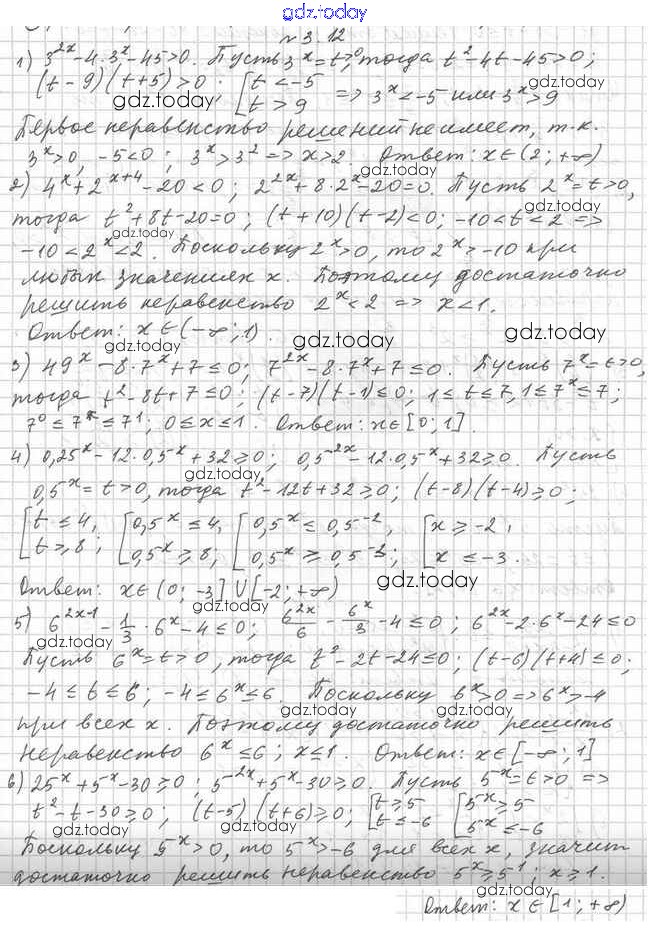 gdz.today
№ 3.12
1) 3^2x - 4·3^x - 45 > 0. Пусть 3^x = t > 0, тогда t² - 4t - 45 > 0;
(t - 9)(t + 5) > 0; [t < -5 t > 9 => 3^x < -5 или 3^x > 9
gdz.today gdz.today
Первое неравенство решений не имеет, т.к.
3^x > 0, -5 < 0; 3^x > 3² => x > 2. Ответ: x ∈ (2; +∞)
gdz.today gdz.today
2) 4^x + 2^x+4 - 20 < 0; 2^2x + 8·2^x - 20 = 0. Пусть 2^x = t > 0,
тогда t² + 8t - 20 = 0; (t + 10)(t - 2) < 0; -10 < t < 2 =>
gdz.today
-10 < 2^x < 2. Поскольку 2^x > 0, то 2^x > -10 при
gdz.today
любых значениях x. Поэтому достаточно
решить неравенство 2^x < 2 => x < 1.
Ответ: x ∈ (-∞; 1).
gdz.today gdz.today gdz.today
3) 49^x - 8·7^x + 7 ≤ 0; 7^2x - 8·7^x + 7 ≤ 0. Пусть 7^x = t > 0,
тогда t² - 8t + 7 ≤ 0; (t - 7)(t - 1) ≤ 0; 1 ≤ t ≤ 7, 1 ≤ 7^x ≤ 7;
gdz.today gdz.today
7^0 ≤ 7^x ≤ 7^1; 0 ≤ x ≤ 1. Ответ: x ∈ [0; 1].
gdz.today
4) 0,25^x - 12·0,5^x + 32 ≥ 0; 0,5^-2x - 12·0,5^x + 32 ≥ 0. Пусть
gdz.today gdz.today
0,5^x = t > 0, тогда t² - 12t + 32 ≥ 0; (t - 8)(t - 4) ≥ 0;
[t ≤ 4, t ≥ 8; [0,5^x ≤ 4, 0,5^x ≥ 8; [0,5^x ≤ 0,5^-2, 0,5^x ≥ 0,5^-3; [x ≥ -2, x ≤ -3.
gdz.today gdz.today
Ответ: x ∈ (0; -3] ∪ [-2; +∞)
gdz.today
5) 6^2x-1 - 1/3·6^x - 4 ≤ 0; 6^2x/6 - 6^x/3 - 4 ≤ 0; 6^2x - 2·6^x - 24 ≤ 0
gdz.today gdz.today
Пусть 6^x = t > 0, тогда t² - 2t - 24 ≤ 0; (t - 6)(t + 4) ≤ 0;
gdz.today
-4 ≤ t ≤ 6; -4 ≤ 6^x ≤ 6. Поскольку 6^x > 0 => 6^x > -4
gdz.today gdz.today
при всех x. Поэтому достаточно решить
неравенство 6^x ≤ 6; x ≤ 1. Ответ: x ∈ [-∞; 1]
gdz.today gdz.today
6) 25^x + 5^x - 30 ≥ 0; 5^-2x + 5^x - 30 ≥ 0. Пусть 5^x = t > 0 =>
gdz.today gdz.today
t² - t - 30 ≥ 0; (t - 5)(t + 6) ≥ 0; [t ≥ 5 t ≤ -6 [5^x ≥ 5 5^x ≤ -6
gdz.today gdz.today gdz.today
Поскольку 5^x > 0, то 5^x > -6 для всех x, значит
достаточно решить неравенство 5^x ≥ 5^1; x ≥ 1.
gdz.today
Ответ: x ∈ [1; +∞)